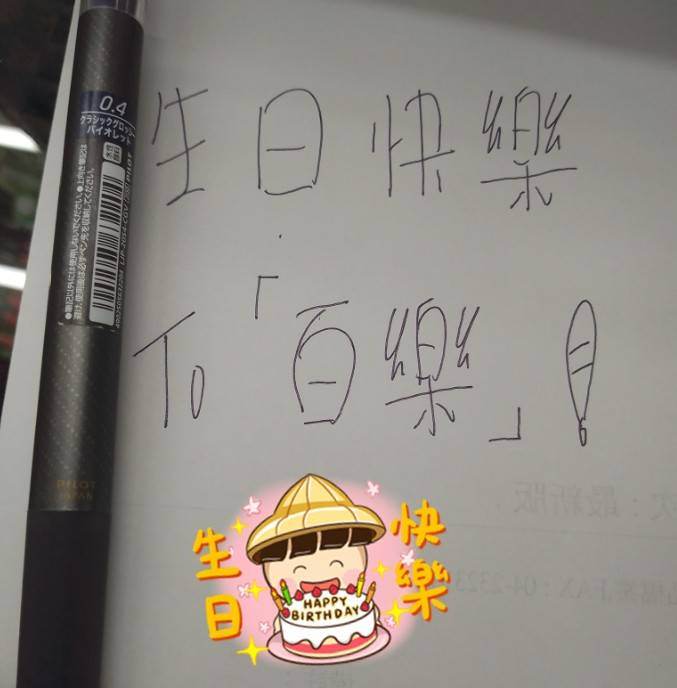 0.4
クラシックグロッシー
バイオレット
PILOT
JAPAN
生日快樂
To「百樂」!
生日
快樂
HAPPY
BIRTHDAY